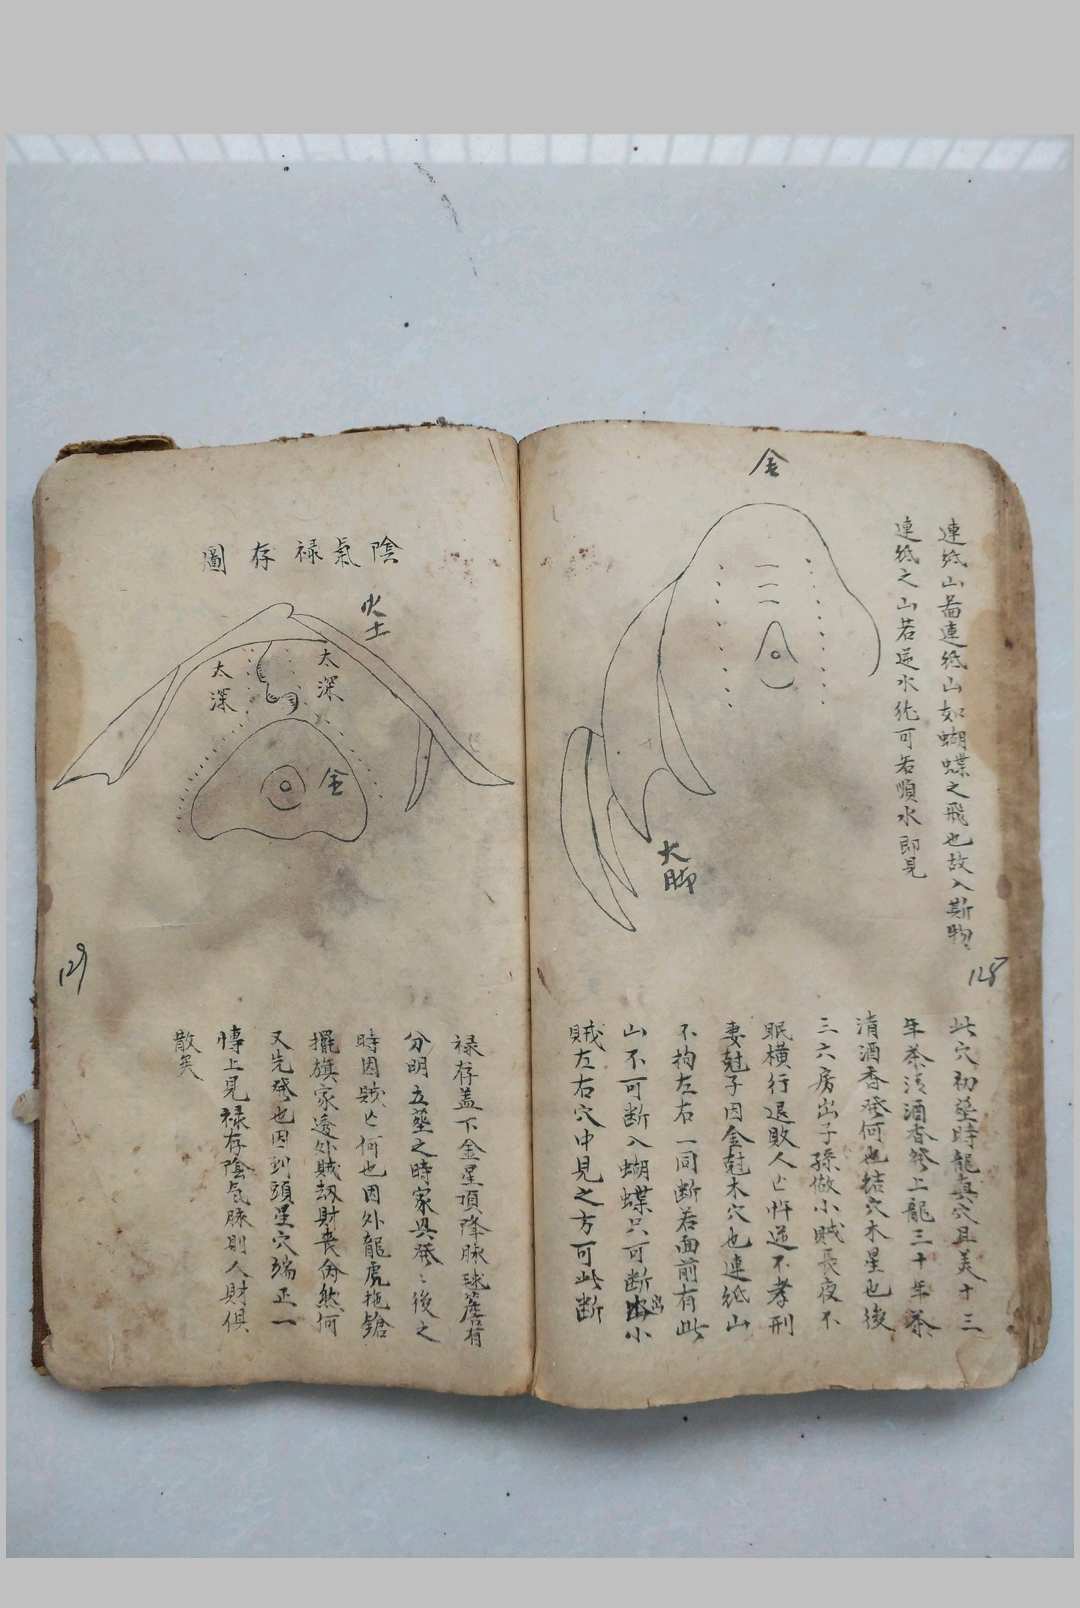 金
連紙山畨連紙山如蝴蝶之飛也故入斯物
連紙之山若逆水純可若順水即見
大脚
128
此穴初塟時龍真穴且美十三
年茶清酒香發上龍三十年茶
清酒香發何也結穴木星也後
三六房出子孫做小賊長夜不
眠横行退敗人亡忤逆不孝刑
妻尅子因金尅木穴也連紙山
不拘左右一同断若面前有此
山不可断入蝴蝶只可断出小
賊左右穴中見之方可此断
陰氣禄存圖
火土
太深
太深
金
129
禄存盖下金星頂降脉球簷有
分明立塟之時家興發〻後之
時因賤亡何也因外龍虎拖鎗
擺旗家邊外賊刼財丧命煞何
又先發也因到頭星穴端正一
慱上見禄存陰氣脉則人財俱
散矣